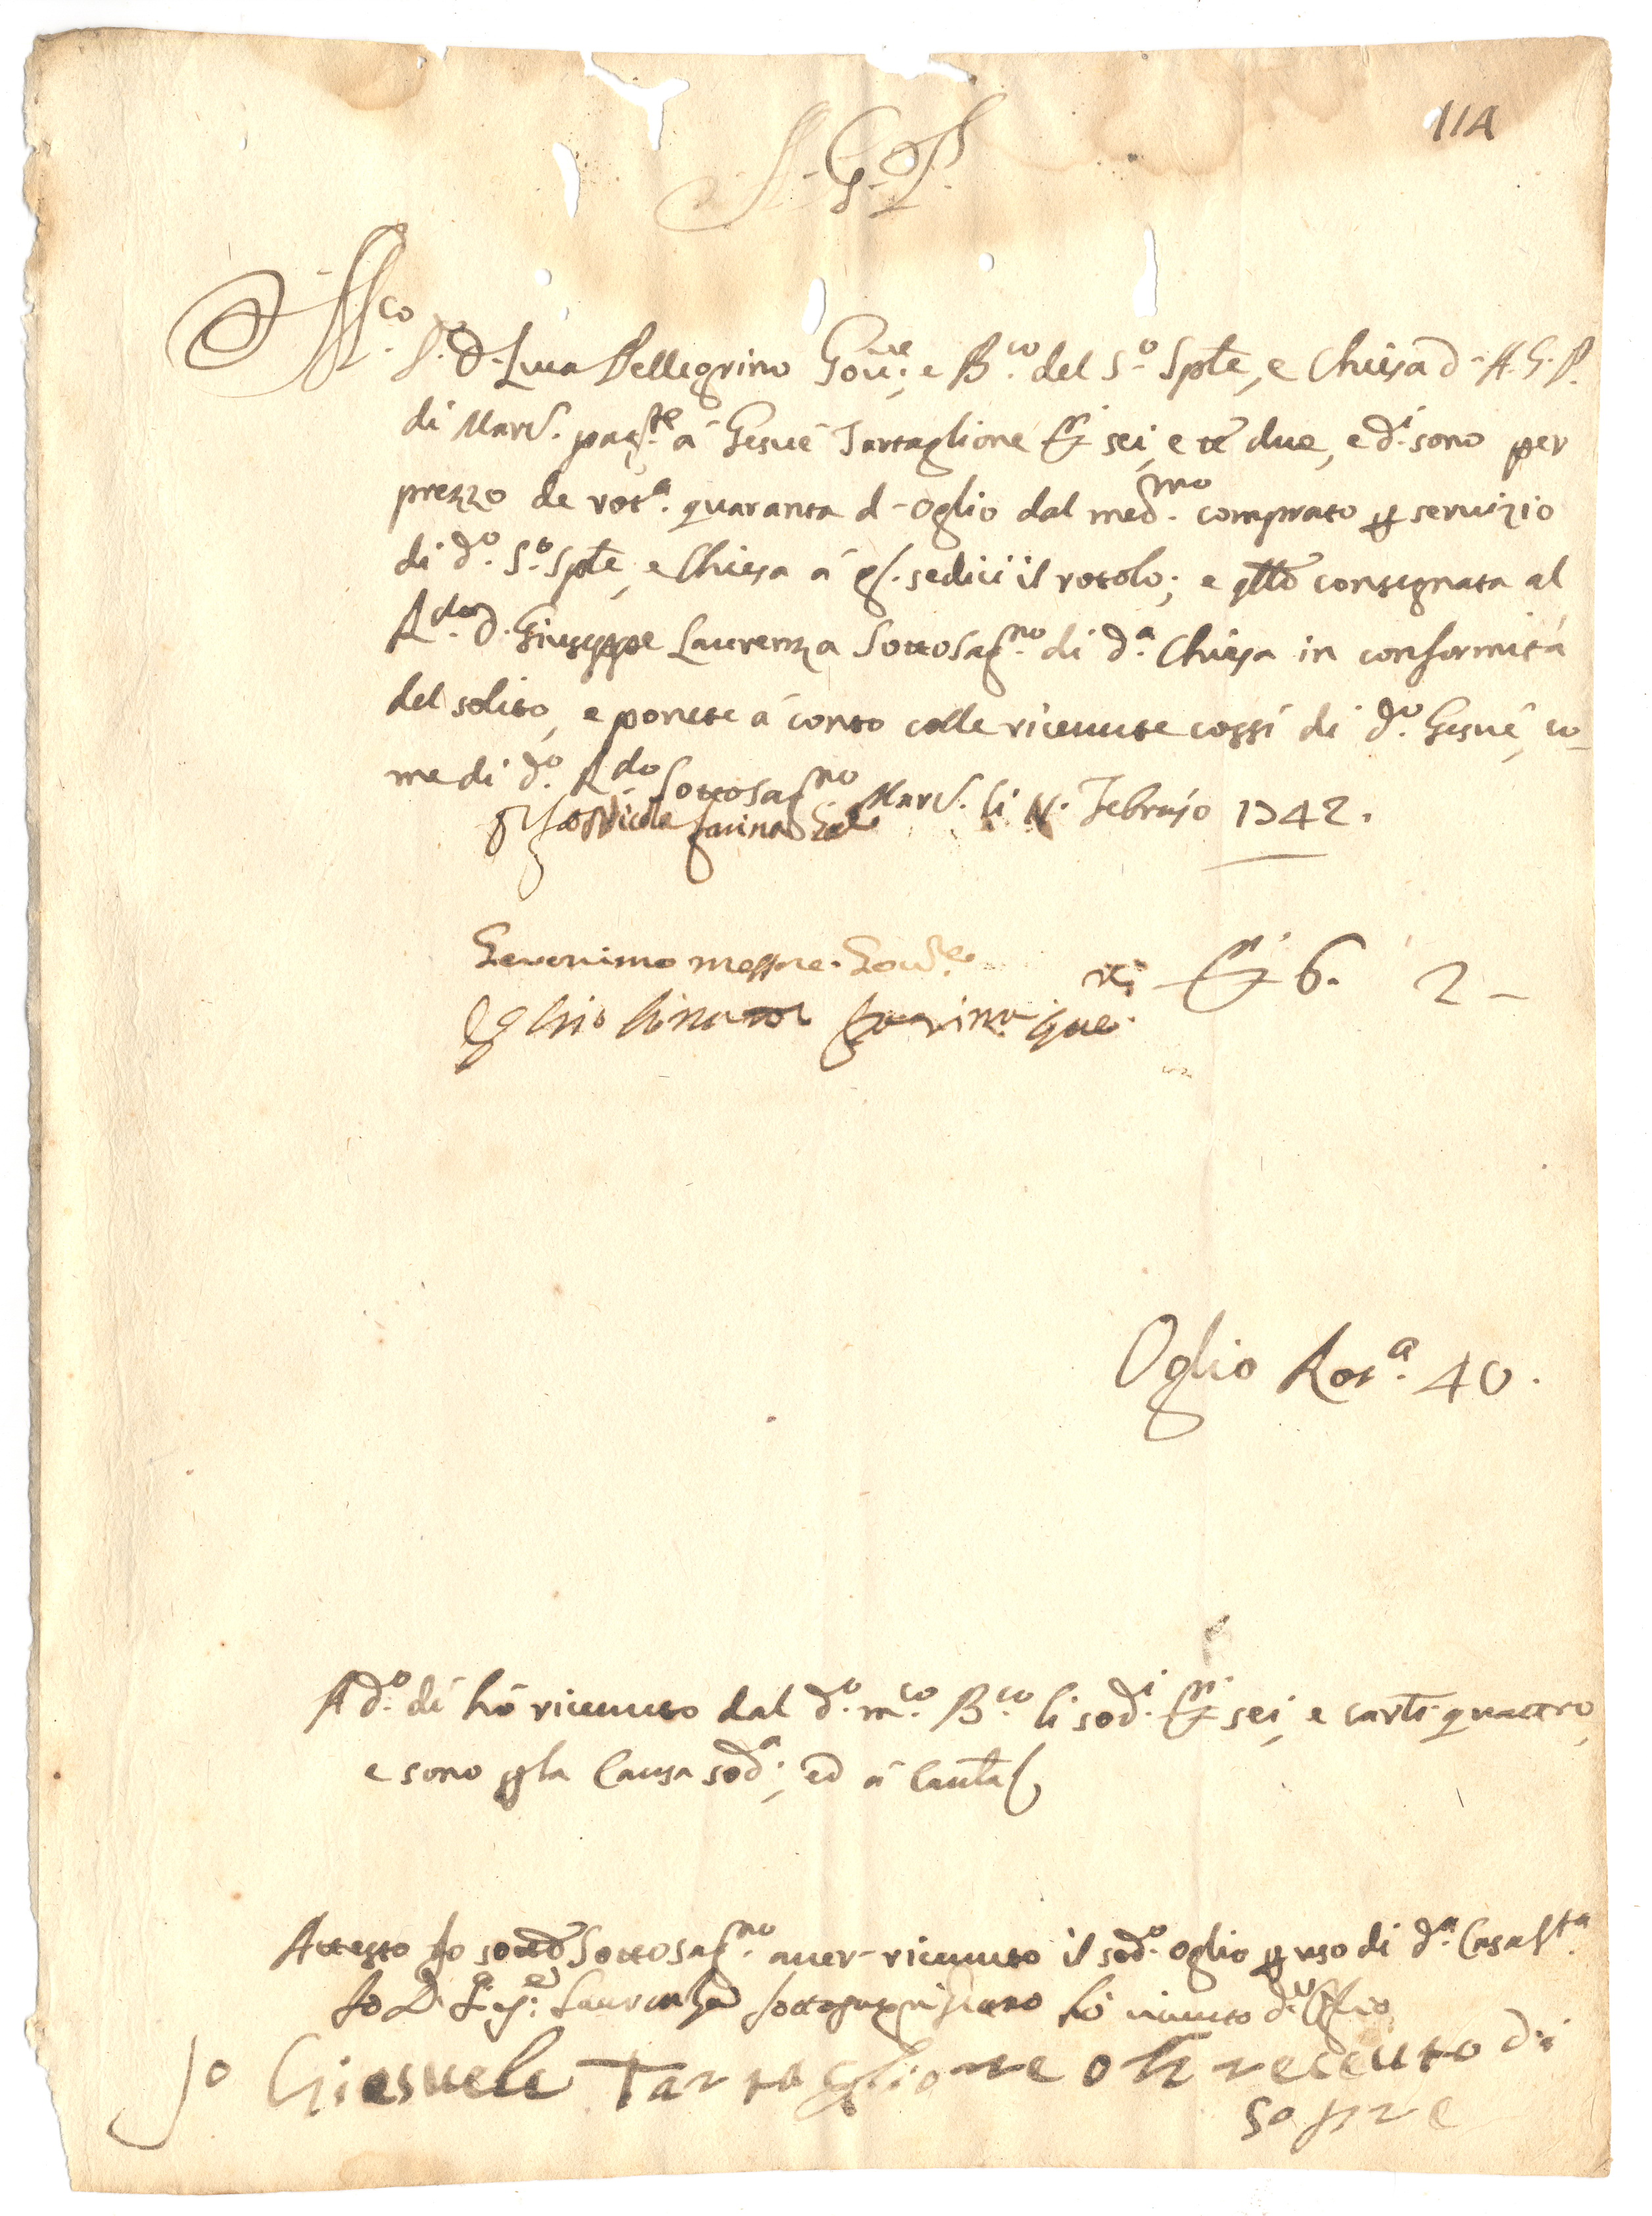 114
A.G.P.
M.co S. D. Luca Pellegrino Gov.re, e B.co del S.o Sple, e Chiesa d. A.G.P.
di Marc. pag.te á Gesuè Tartaglione D.ti sei, e tt due, e d.i sono per
prezzo de rot.a quaranta d-oglio dal med.mo comprato p servizio
di d.o S.o Sple, e Chiesa á g. sedici il rotolo; e qllo consegnata al
R.do D. Giuseppe Laurenza Sottosag.no di d.a Chiesa in conformitá
del solito, e ponete á conto colle ricevute cossí di d.o Gesuè, co-
me di d.o R.do Sottosag.no Marc. li Febrajo 1742.
Nicola farina
Geronimo messore Gov.re
D.ti 6. 2 -
farina
Oglio Rot.a 40.
A d.o dí hó ricevuto dal d.o m.co B.co li sod.i D.ti sei, e carli quattro,
e sono p la Causa sod.a; ed á Cautla
Attesto Io sotto Sottosag.no aver-ricevuto il sod.o oglio p uso di d.a Casa S.ta
Io D. Laurenza sottosagristano hó ricevuto d.o Oglio
Jo Giesuele Tartaglione oh receuto di
sopre